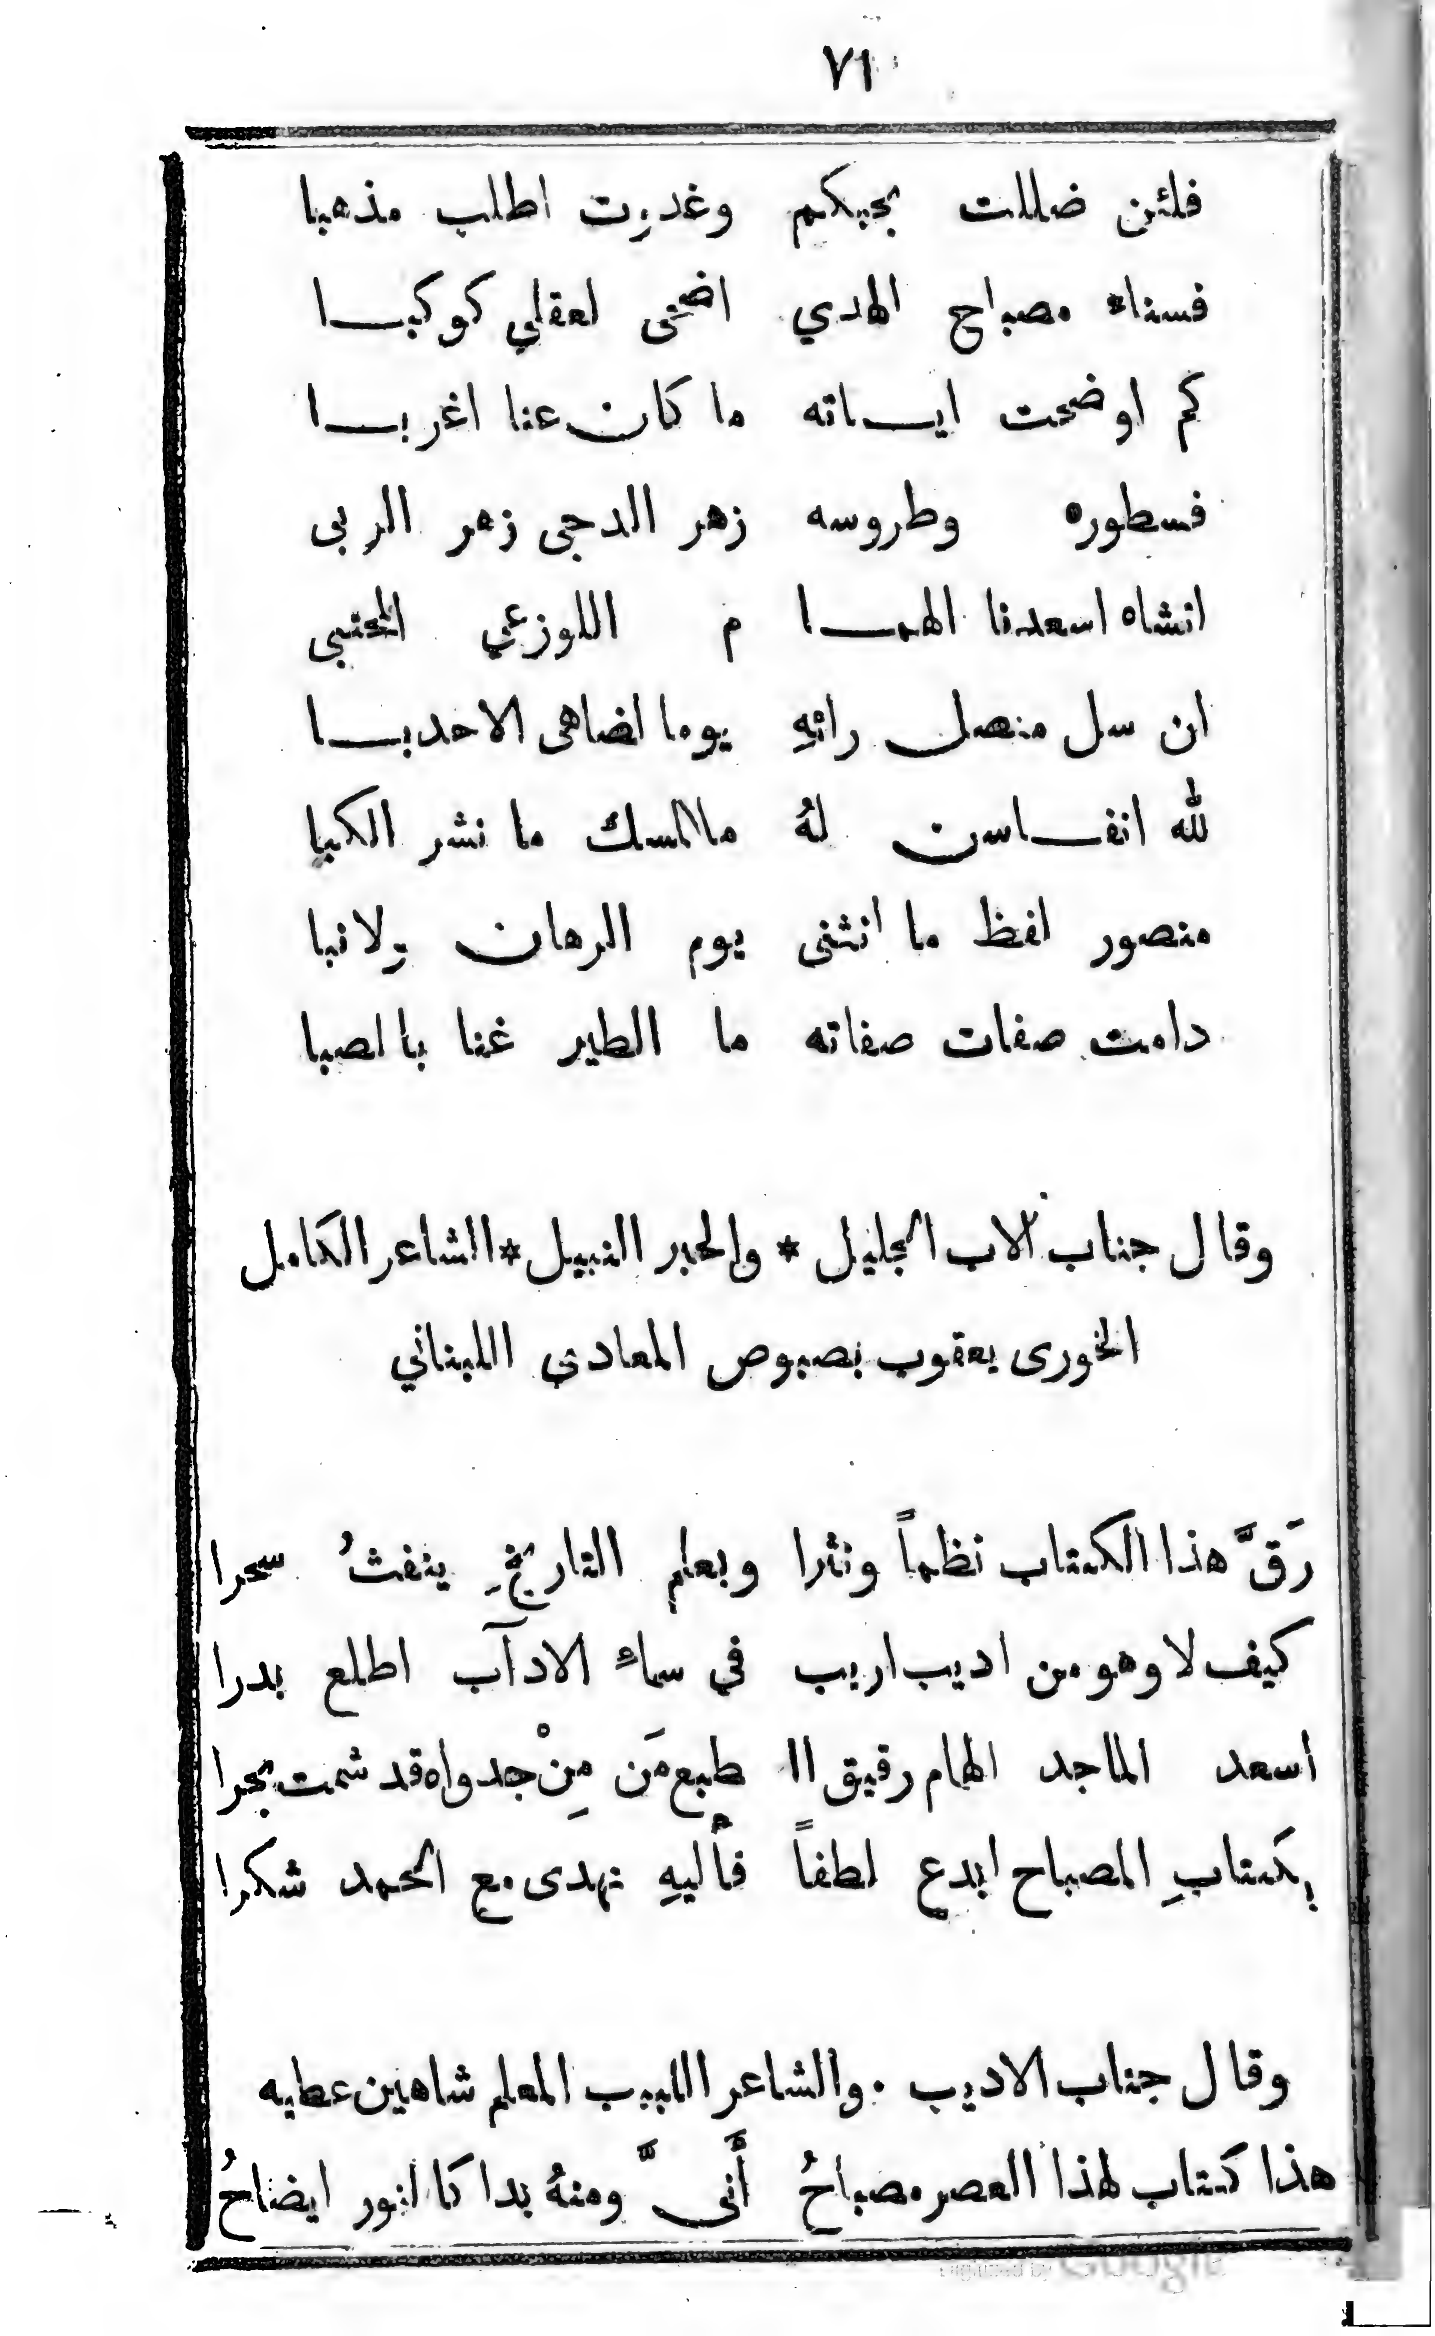 ٧١
فلئن ضللت بحبكم وغدوت اطلب مذهبا
فسناء مصباح الهدي اضحى لعقلي كوكبـــا
كم اوضحت ايـــاته ما كان عنا اغربـــا
فسطوره وطروسه زهر الدجى زهر الربى
انشاه اسعدنا الهمـــا م اللوزعي المجتبى
ان سل منصل رائهِ يوما لضاهى الاحدبـــا
لله انفـــاسن لهُ ما المسك ما نشر الكبا
منصور لفظ ما انثنى يوم الرهان ولا نبا
دامت صفات صفاته ما الطير غنا بالصبا
وقال جناب الاب الجليل * والحبر النبيل * الشاعر الكامل
الخورى يعقوب بصبوص المعادي اللبناني
رَقَّ هذا الكتاب نظماً ونثرا وبعلمِ التاريخِ ينفثُ سحرا
كيف لا وهو من اديب اريب في سماءِ الادآب اطلع بدرا
اسعد الماجد الهام رقيق ال طبع مَن مِنْ جدواه قد شمت بحرا
بكتابِ المصباح ابدع لطفاً فأليهِ نهدى مع الحمد شكرا
وقال جناب الاديب . والشاعر اللبيب المعلم شاهين عطيه
هذا كتاب لهذا العصر مصباحُ أَنىَّ ومنهُ بدا كالنور ايضاحُ
Digitized by Google